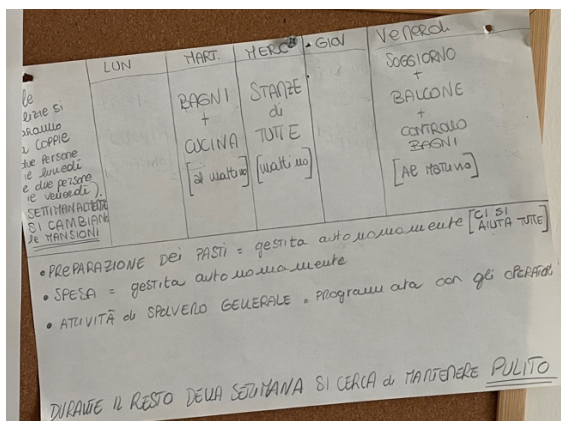 LUN MART. MERC. GIOV Venerdì
le
lizie si
faranno
a COPPIE
due persone
ie lunedì
e due persone
ie venerdì).
SETTIMANALMENTE
SI CAMBIANO
le MANSIONI
BAGNI
+
CUCINA
[al mattino]
STANZE
di
TUTTE
[mattino]
SOGGIORNO
+
BALCONE
+
CONTROLLO
BAGNI
[Al MATTINO]
• PREPARAZIONE DEI PASTI = gestita autonomamente [CI SI
AIUTA TUTTE]
• SPESA = gestita autonomamente
• ATTIVITÀ di SPOLVERO GENERALE = programmata con gli OPERATORI
DURANTE IL RESTO DELLA SETTIMANA SI CERCA di MANTENERE PULITO